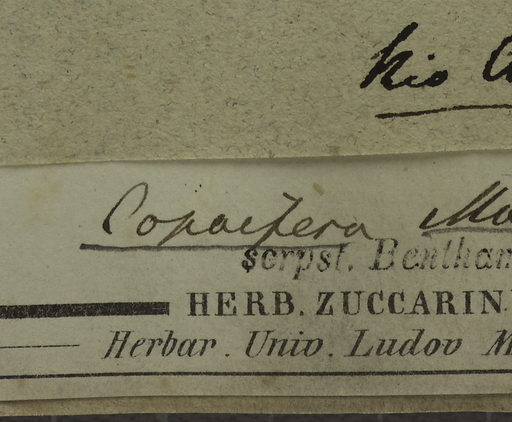 Rio
Copaifera Ma
scrpst. Bentham
HERB. ZUCCARIN
Herbar. Univ. Ludov M